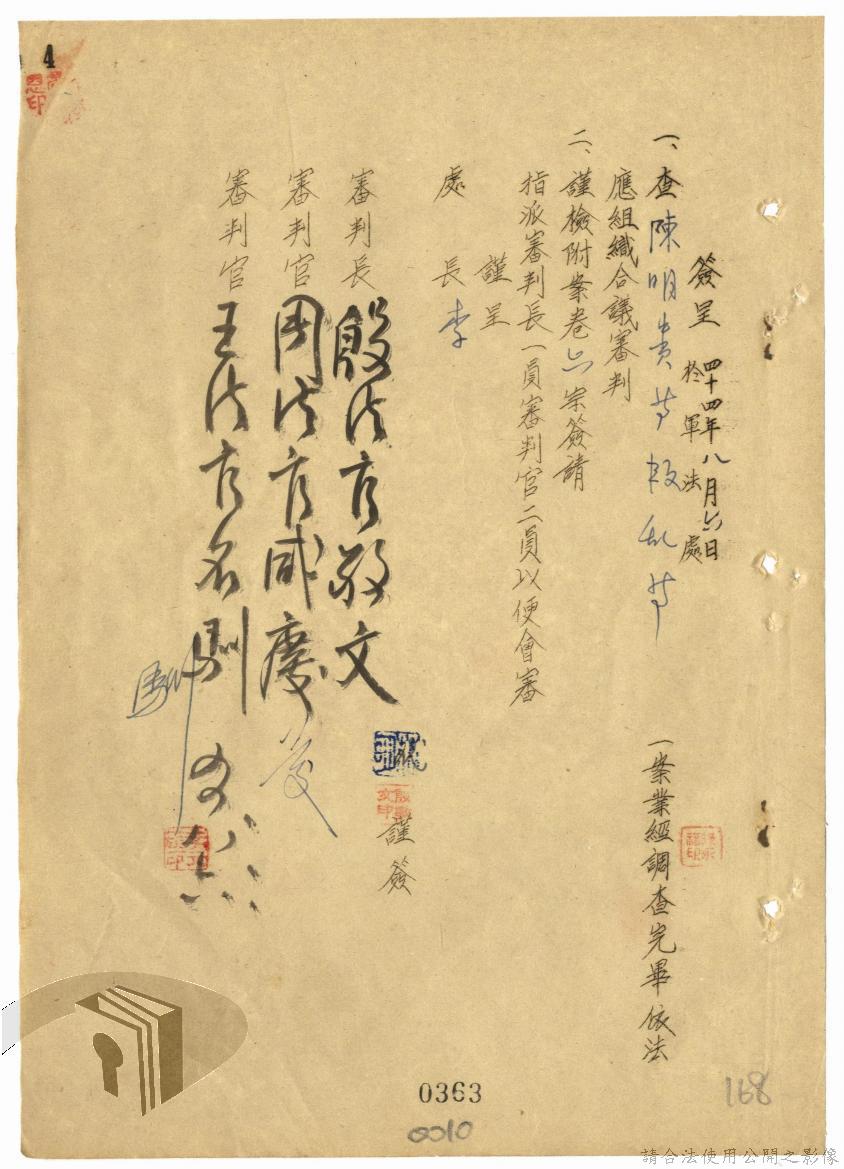 4
簽呈 四十四年八月六日
於軍法處
一、查陳明貴等叛乱等一案業經調查完畢依法
應組織合議審判
二、謹檢附案卷六宗簽請
指派審判長一員審判官二員以便會審
謹呈
處長李
審判長 殷法官敬文
謹簽
審判官 周法官咸慶
審判官 王法官名馴
八六
0363
0010
168
請合法使用公開之影像